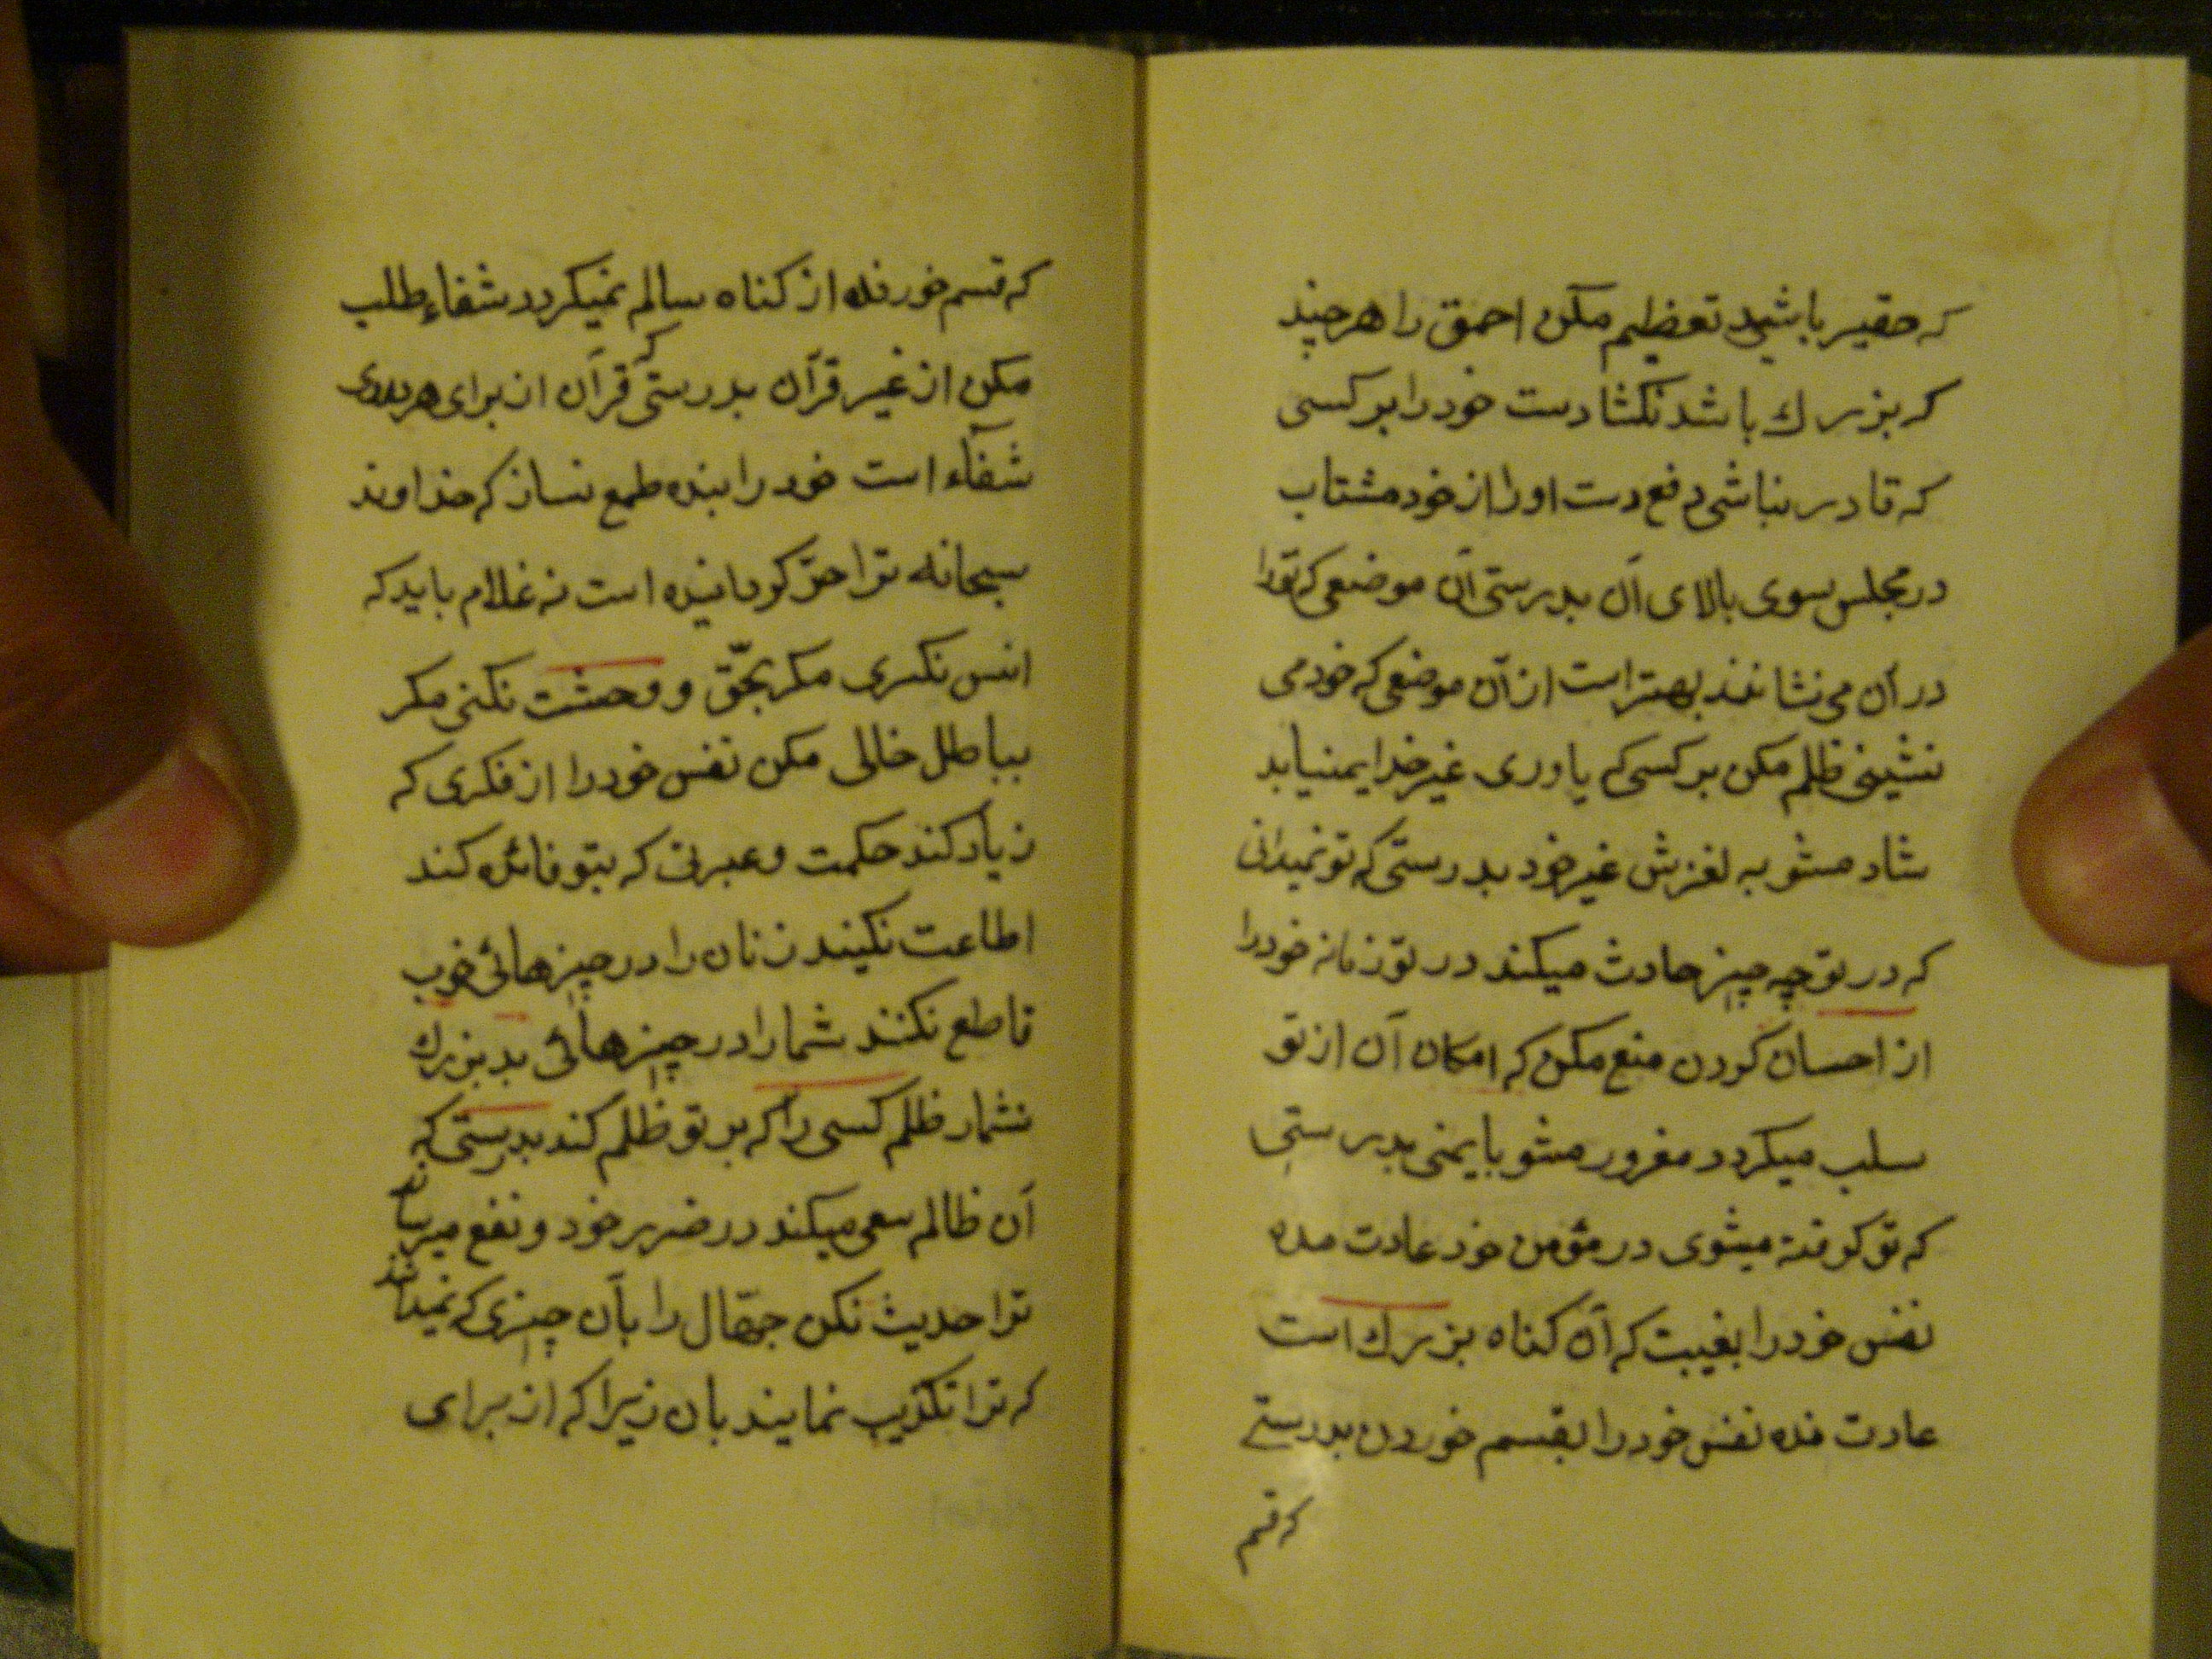 که حقیر باشید تعظیم مکن احمق را هر چند
که بزرك باشد نکشا دست خود را بر کسی
که قادر نباشی دفع دست او را از خود مشتاب
در مجلس سوی بالای آن بدرستی آن موضعی که ترا
در آن می نشانند بهتر است از آن موضعی که خود می
نشینی ظلم مکن بر کسی که یاوری غیر خدا نمییابد
شاد مشو به لغزش غیر خود بدرستی که تو نمیدانی
که در تو چه چیز حادث میکند در تو زمانه خود را
از احسان کردن منع مکن که امکان آن از تو
سلب میکردد مغرور مشو بایمنی بدرستی
که تو کرفته میشوی در مؤمن خود عادت مده
نفس خود را بغیبت که آن کناه بزرك است
عادت مده نفس خود را بقسم خوردن بدرستی
که قسم
که قسم خورنده از کناه سالم نمیکردد شفاء طلب
مکن از غیر قرآن بدرستی که قرآن از برای هر دردی
شفآء است خود را بنده طمع نساز که خداوند
سبحانه ترا حرّ کردانیده است نه غلام باید که
انس نکیری مکر بحّق و وحشت نکنی مکر
بباطل خالی مکن نفس خود را از فکری که
زیاد کند حکمت و عبرتی که بتو فائده کند
اطاعت نکنید زنان را در چیزهائی خوب
تا طمع نکنند شما را در چیزهائی بد بزرك
نشمار ظلم کسی را که بر تو ظلم کند بدرستی که
آن ظالم سعی میکند در ضرر خود و نفع میرساند
ترا حدیث نکن جهّال را بآن چیزی که نمیدانند
که ترا تکذیب نمایند بان زیرا که از برای